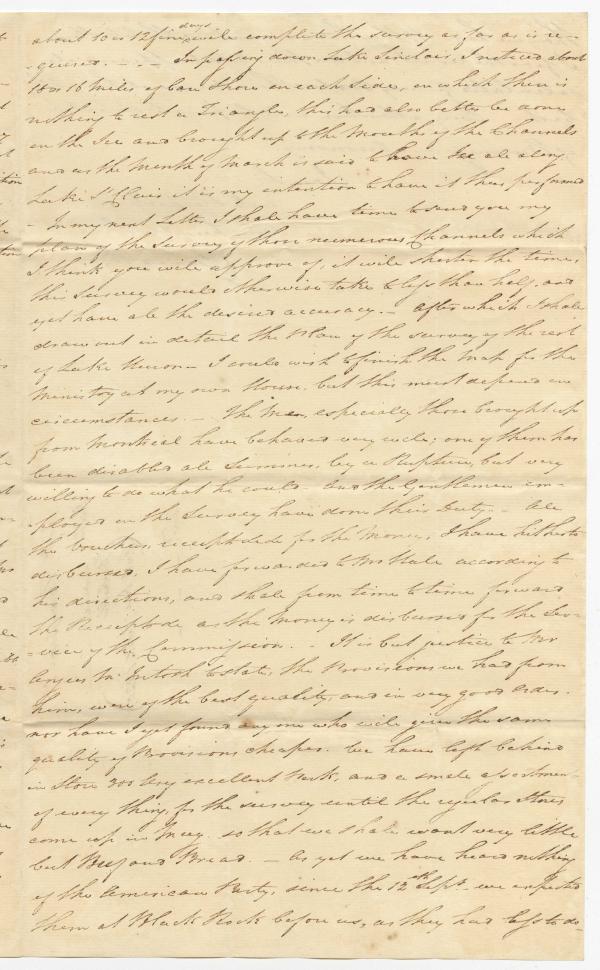 about 10 or 12 fine days will complete the survey as far as is re-
-quired. - - - In passing down Lake Sinclair, I noticed about
15 or 16 miles of low Shore on each side, on which there is
nothing to rest a Triangle, this had also better be done
on the Ice and brought up to the Mouths of the Channels
and as the Month of March is said to have Ice all along
Lake St Clair it is my intention to have it thus performed
- In my next Letter I shall have time to send you my
plan of the Survey of those numerous Channels which
I think you will approve of, it will shorten the time,
this Survey would otherwise take to less than half, and
yet have all the desired accuracy. - After which I shall
draw out in detail the Plan of the survey of the rest
of Lake Huron - I could wish to finish the Map for the
Ministry at my own House, but this must depend on
circumstances. - The Men, especially those brought up
from Montreal have behaved very well; one of them has
been disabled all Summer, by a Rupture, but very
willing to do what he could. And the Gentlemen em-
-ployed on the Survey have done their Duty - All
the Vouchers, receipts &c for the Money, I have hitherto
disbursed, I have forwarded to Mr Hale according to
his directions, and shall from time to time forward
the Receipts &c as the Money is disbursed for the Ser-
-vice of the Commission. - It is but justice to Mr
Angus McIntosh to state, the Provisions we had from
him, were of the best quality, and in very good order.
nor have I yet found any one who will give the same
quality of Provisions cheaper. We have left behind
in Store 300 excellent Pork, and a small assortment
of every thing, for the survey until the regular Stores
come up in May. so that we shall want very little
but Beef and Bread. - As yet we have heard nothing
of the American Party, since the 12th Sept. we expected
them at Black Rock before us, as they had less to do